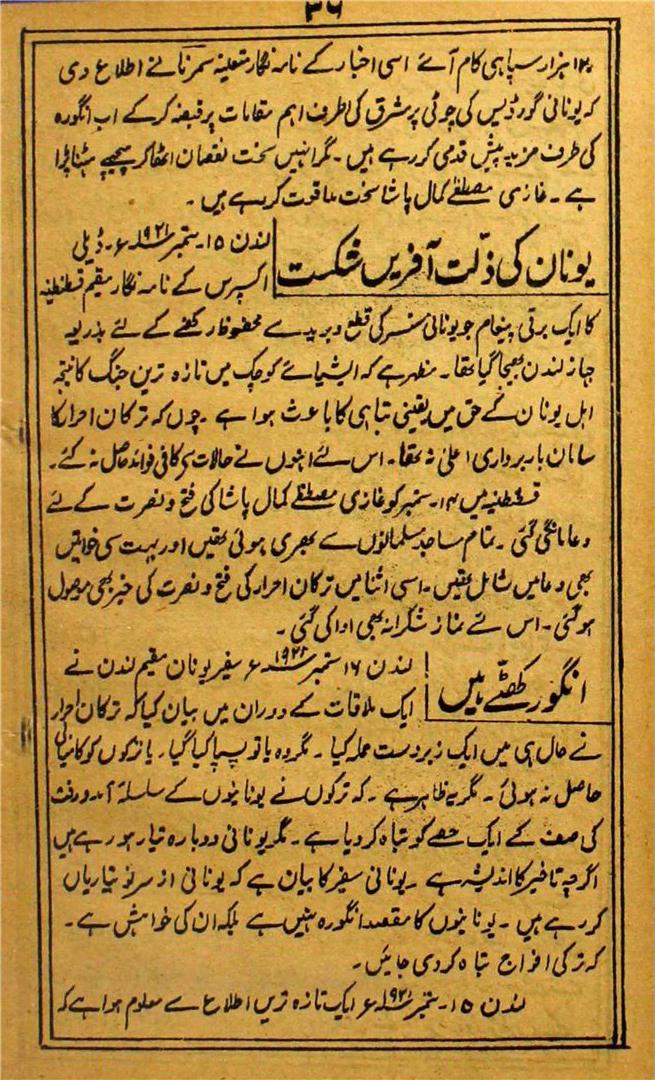 ۳۶
۱۲ ہزار سپاہی کام آئے اسی اخبار کے نامہ نگار متعینہ سمرنا نے اطلاع دی
کہ یونانی گورڈیس کی چوٹی پر مشرق کی طرف اہم مقامات پر قبضہ کرکے اب انگورہ
کی طرف مزید پیش قدمی کر رہے ہیں ۔ مگر انہیں سخت نقصان اٹھا کر پیچھے ہٹنا پڑا
ہے ۔ غازی مصطفےٰ کمال پاشا سخت مدافعت کر رہے ہیں ۔
یونان کی ذلّت آفریں شکست
لندن ۱۵ ۔ ستمبر ۱۹۲۱ء ۔ ڈیلی
اکسپرس کے نامہ نگار مقیم قسطنطنیہ
کا ایک برقی پیغام جو یونانی سنسر کی قطع و برید سے محفوظ رکھنے کے لئے بذریعہ
جہاز لندن بھیجا گیا تھا ۔ مظہر ہے کہ ایشیائے کوچک میں تازہ ترین جنگ کا نتیجہ
اہل یونان کے حق میں یقینی تباہی کا باعث ہوا ہے ۔ چوں کہ ترکان احرار کا
سامان باربرداری اعلیٰ نہ تھا ۔ اس لئے انہوں نے حالات سے کافی فوائد حاصل نہ کئے ۔
قسطنطنیہ میں ۱۴ ۔ ستمبر کو غازی مصطفےٰ کمال پاشا کی فتح و نصرت کے لئے
دعا مانگی گئی ۔ تمام مساجد مسلمانوں سے بھری ہوئی تھیں اور بہت سی خواتین
بھی دعا میں شامل تھیں ۔ اسی اثنا میں ترکان احرار کی فتح و نصرت کی خبر بھی موصول
ہو گئی ۔ اس لئے نماز شکرانہ بھی ادا کی گئی ۔
انگور کھٹّے ہیں
لندن ۱۶ ستمبر ۱۹۲۱ء سفیر یونان مقیم لندن نے
ایک ملاقات کے دوران میں بیان کیا کہ ترکان احرار
نے حال ہی میں ایک زبردست حملہ کیا ۔ مگر وہ یا تو پسپا کیا گیا ۔ یا ترکوں کو کامیابی
حاصل نہ ہوئی ۔ مگر یہ ظاہر ہے ۔ کہ ترکوں نے یونانیوں کے سلسلۂ آمد و رفت
کی صف کے ایک حصے کو تباہ کر دیا ہے ۔ مگر یونانی دوبارہ تیار ہو رہے ہیں
اگرچہ تاخیر کا اندیشہ ہے ۔ یونانی سفیر کا بیان ہے کہ یونانی از سر نو تیاریاں
کر رہے ہیں ۔ یونانیوں کا مقصد انگورہ نہیں ہے بلکہ ان کی خواہش ہے ۔
کہ ترکی افواج تباہ کر دی جائیں ۔
لندن ۱۵ ۔ ستمبر ۱۹۲۱ء ایک تازہ ترین اطلاع سے معلوم ہوا ہے کہ